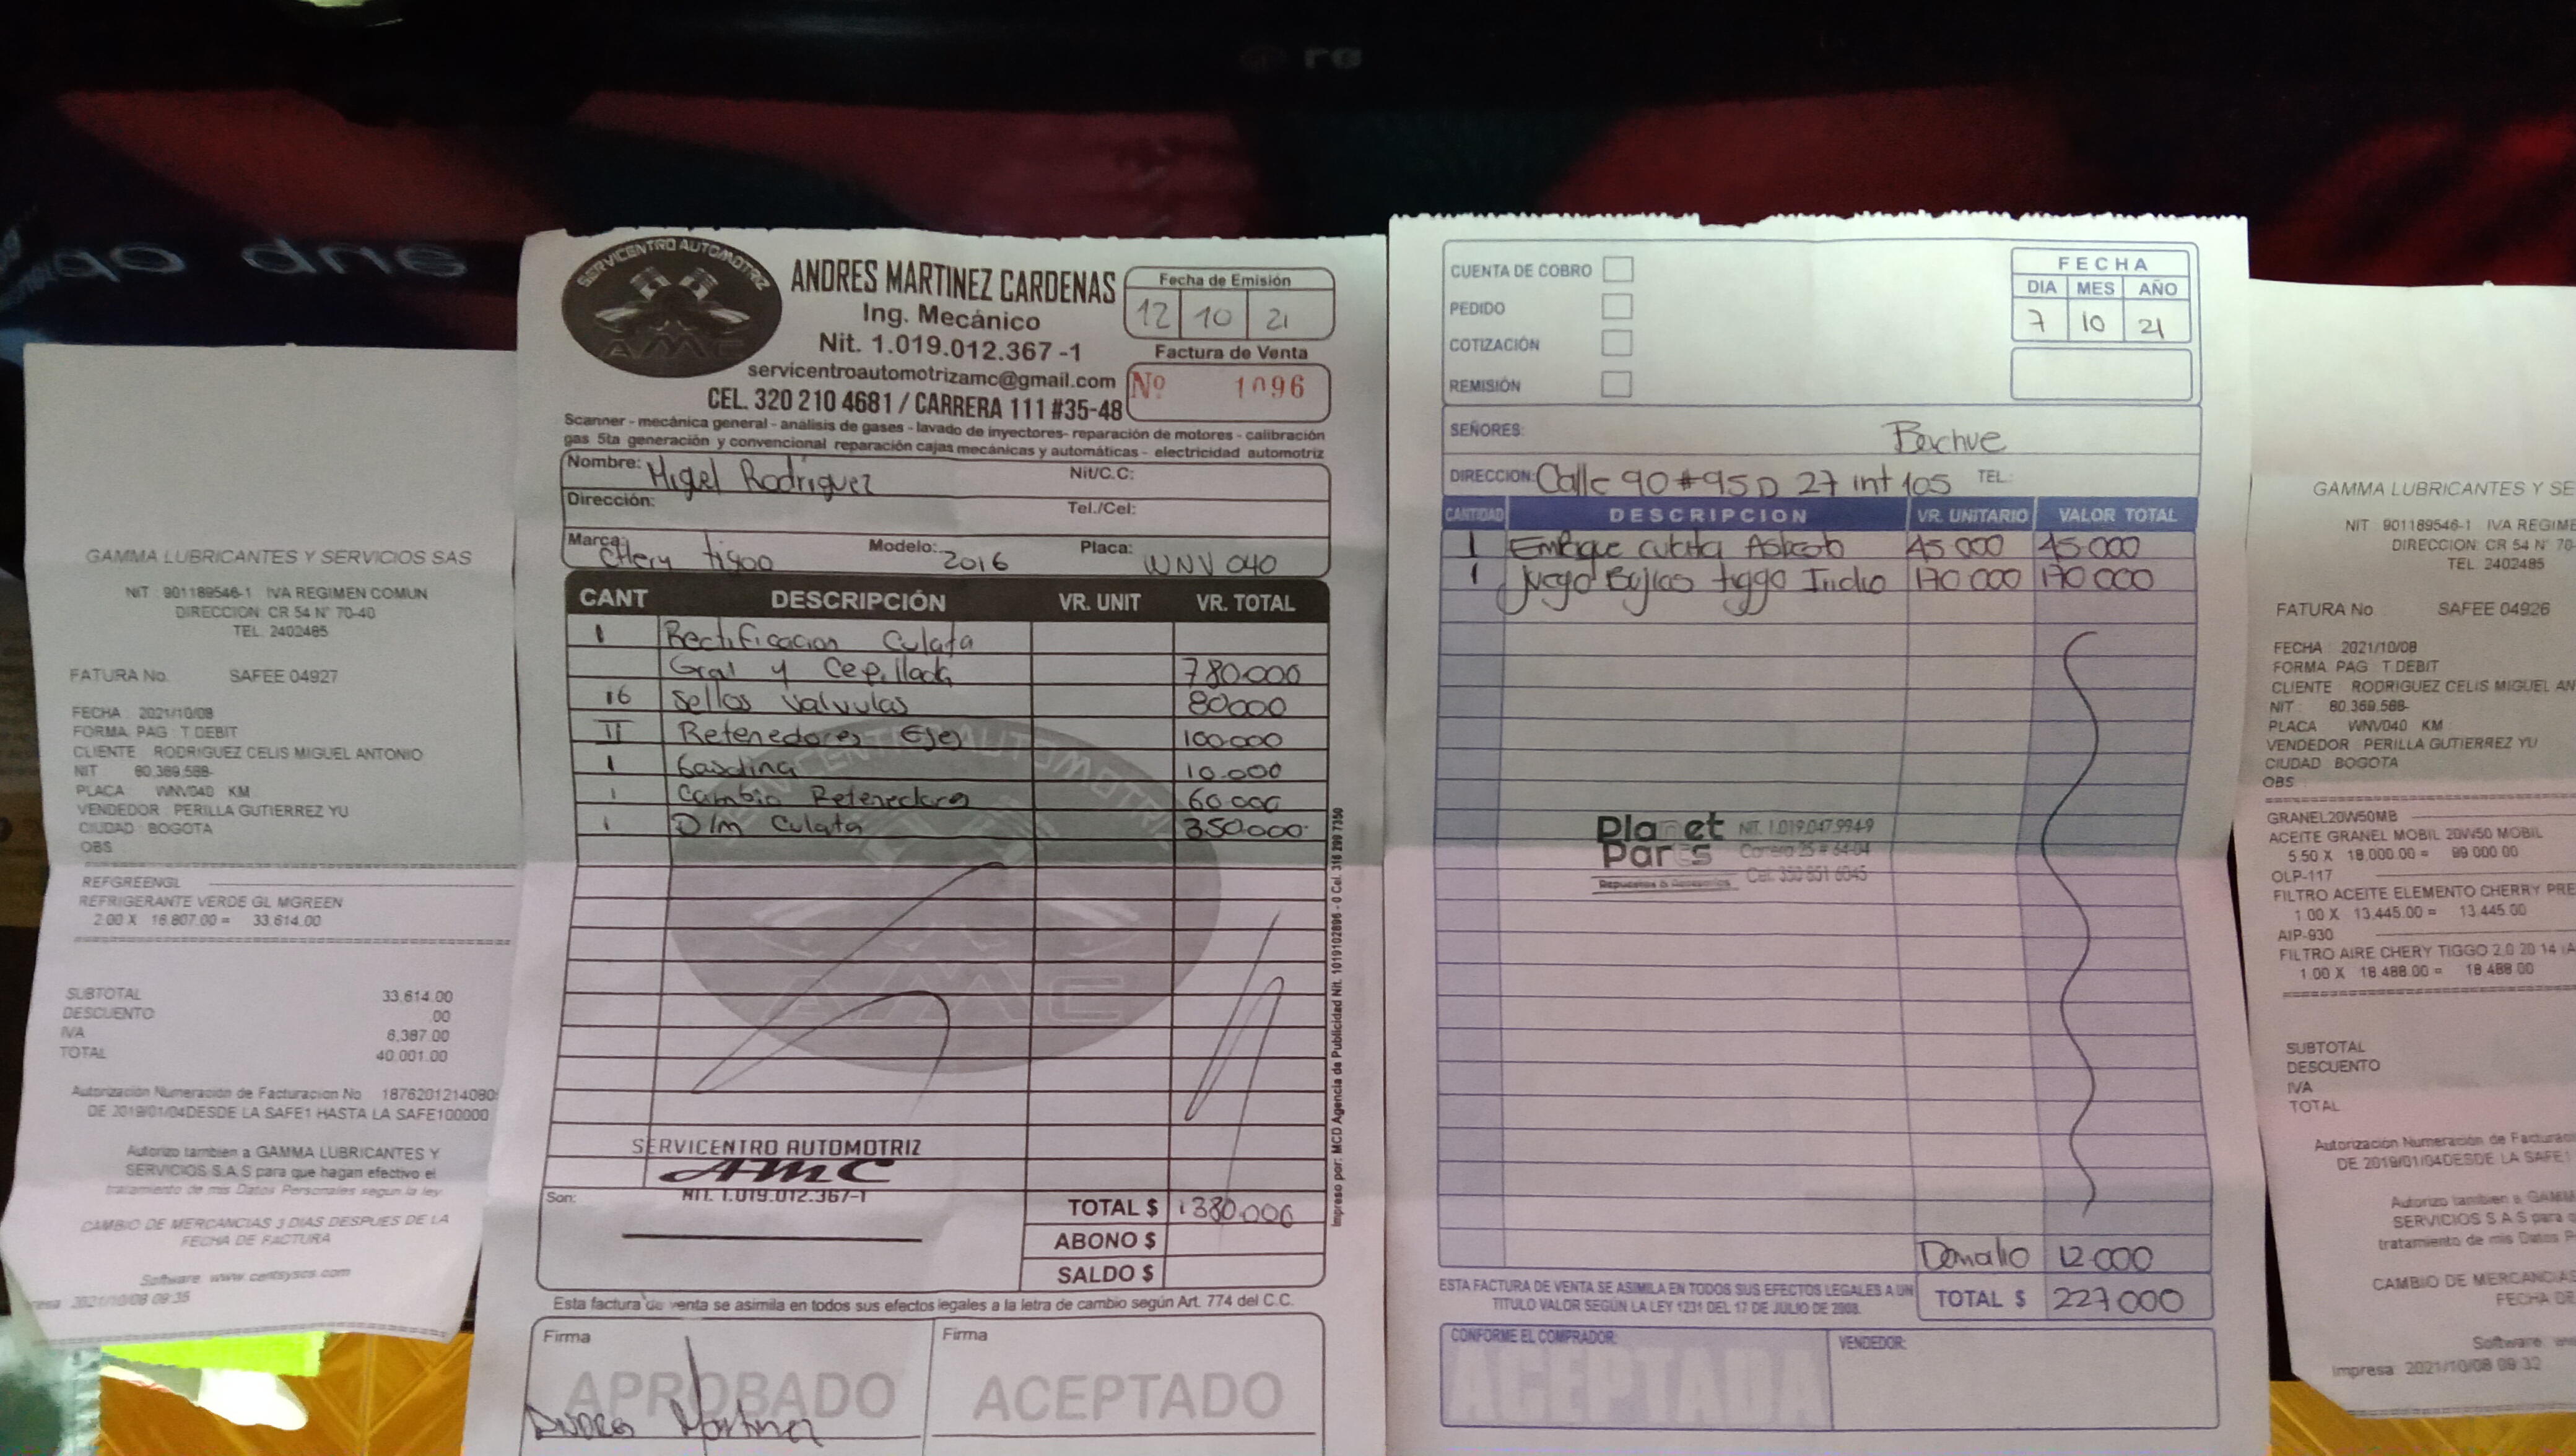 GAMMA LUBRICANTES Y SERVICIOS SAS
NIT : 901189546-1 IVA REGIMEN COMUN
DIRECCION: CR 54 N° 70-40
TEL. 2402485
FATURA No. SAFEE 04927
FECHA : 2021/10/08
FORMA. PAG : T.DEBIT
CLIENTE : RODRIGUEZ CELIS MIGUEL ANTONIO
NIT : 80,369,588-
PLACA : WNV040 KM :
VENDEDOR : PERILLA GUTIERREZ YU
CIUDAD : BOGOTA
OBS :
REFGREENGL
REFRIGERANTE VERDE GL MGREEN
2.00 X 16.807.00 = 33.614.00
SUBTOTAL 33,614.00
DESCUENTO .00
IVA 6,387.00
TOTAL 40,001.00
Autorización Numeración de Facturacion No 1876201214080
DE 2019/01/04DESDE LA SAFE1 HASTA LA SAFE100000
Autorizo tambien a GAMMA LUBRICANTES Y
SERVICIOS S.A.S para que hagan efectivo el
tratamiento de mis Datos Personales segun la ley
CAMBIO DE MERCANCIAS 3 DIAS DESPUES DE LA
FECHA DE FACTURA
Software: www.centsyscs.com
resa: 2021/10/08 09:35
SERVICENTRO AUTOMOTRIZ
AMC
ANDRES MARTINEZ CARDENAS
Ing. Mecánico
Nit. 1.019.012.367 -1
servicentroautomotrizamc@gmail.com
CEL. 320 210 4681 / CARRERA 111 #35-48
Fecha de Emisión
12 10 21
Factura de Venta
Nº 1096
Scanner - mecánica general - análisis de gases - lavado de inyectores- reparación de motores - calibración
gas 5ta generación y convencional reparación cajas mecánicas y automáticas - electricidad automotriz
Nombre: Migel Rodriguez Nit/C.C:
Dirección: Tel./Cel:
Marca: CHery tiggo Modelo: 2016 Placa: WNV 040
CANT DESCRIPCIÓN VR. UNIT VR. TOTAL
1 Rectificacion Culata
Gral y Cepillada 780.000
16 Sellos Valvulas 80000
II Retenedores Ejes 100.000
1 Gasolina 10.000
1 Cambio Retenedores 60.000
1 D/m Culata 350.000
SERVICENTRO AUTOMOTRIZ
AMC
NIT. 1.019.012.367-1
Son:
TOTAL $ 1380.000
ABONO $
SALDO $
Impreso por: MCD Agencia de Publicidad Nit. 1019102896 - 0 Cel. 316 299 7350
Esta factura de venta se asimila en todos sus efectos legales a la letra de cambio según Art. 774 del C.C.
Firma Firma
APROBADO ACEPTADO
Andres Martinez
CUENTA DE COBRO
PEDIDO
COTIZACIÓN
REMISIÓN
FECHA
DIA MES AÑO
7 10 21
SEÑORES: Bachue
DIRECCION: Calle 90 # 95 D 27 int 105 TEL.:
CANTIDAD DESCRIPCION VR. UNITARIO VALOR TOTAL
1 Empaque culata Asbesto 45.000 45.000
1 Juego Bujias tiggo Iridio 170 000 170 000
Planet Parts
Repuestos & Accesorios
NIT. 1.019.047.994-9
Carrera 25 # 64-04
Cel. 350 851 6045
12.000
ESTA FACTURA DE VENTA SE ASIMILA EN TODOS SUS EFECTOS LEGALES A UN
TITULO VALOR SEGÚN LA LEY 1231 DEL 17 DE JULIO DE 2008.
TOTAL $ 227000
CONFORME EL COMPRADOR: VENDEDOR:
ACEPTADA
GAMMA LUBRICANTES Y SE
NIT : 901189546-1 IVA REGIME
DIRECCION: CR 54 N° 70-
TEL. 2402485
FATURA No. SAFEE 04926
FECHA : 2021/10/08
FORMA. PAG : T.DEBIT
CLIENTE : RODRIGUEZ CELIS MIGUEL AN
NIT : 80,369,588-
PLACA : WNV040 KM :
VENDEDOR : PERILLA GUTIERREZ YU
CIUDAD : BOGOTA
OBS :
GRANEL20W50MB
ACEITE GRANEL MOBIL 20W50 MOBIL
5.50 X 18,000.00 = 99.000.00
OLP-117
FILTRO ACEITE ELEMENTO CHERRY PRE
1.00 X 13.445.00 = 13.445.00
AIP-930
FILTRO AIRE CHERY TIGGO 2.0 20 14 (A
1.00 X 18.488.00 = 18.488.00
SUBTOTAL
DESCUENTO
IVA
TOTAL
Autorización Numeración de Facturac
DE 2019/01/04DESDE LA SAFE1
Autorizo tambien a GAMM
SERVICIOS S.A.S para q
tratamiento de mis Datos P
CAMBIO DE MERCANCIAS
FECHA DE
Software: ww
Impresa: 2021/10/08 09:32